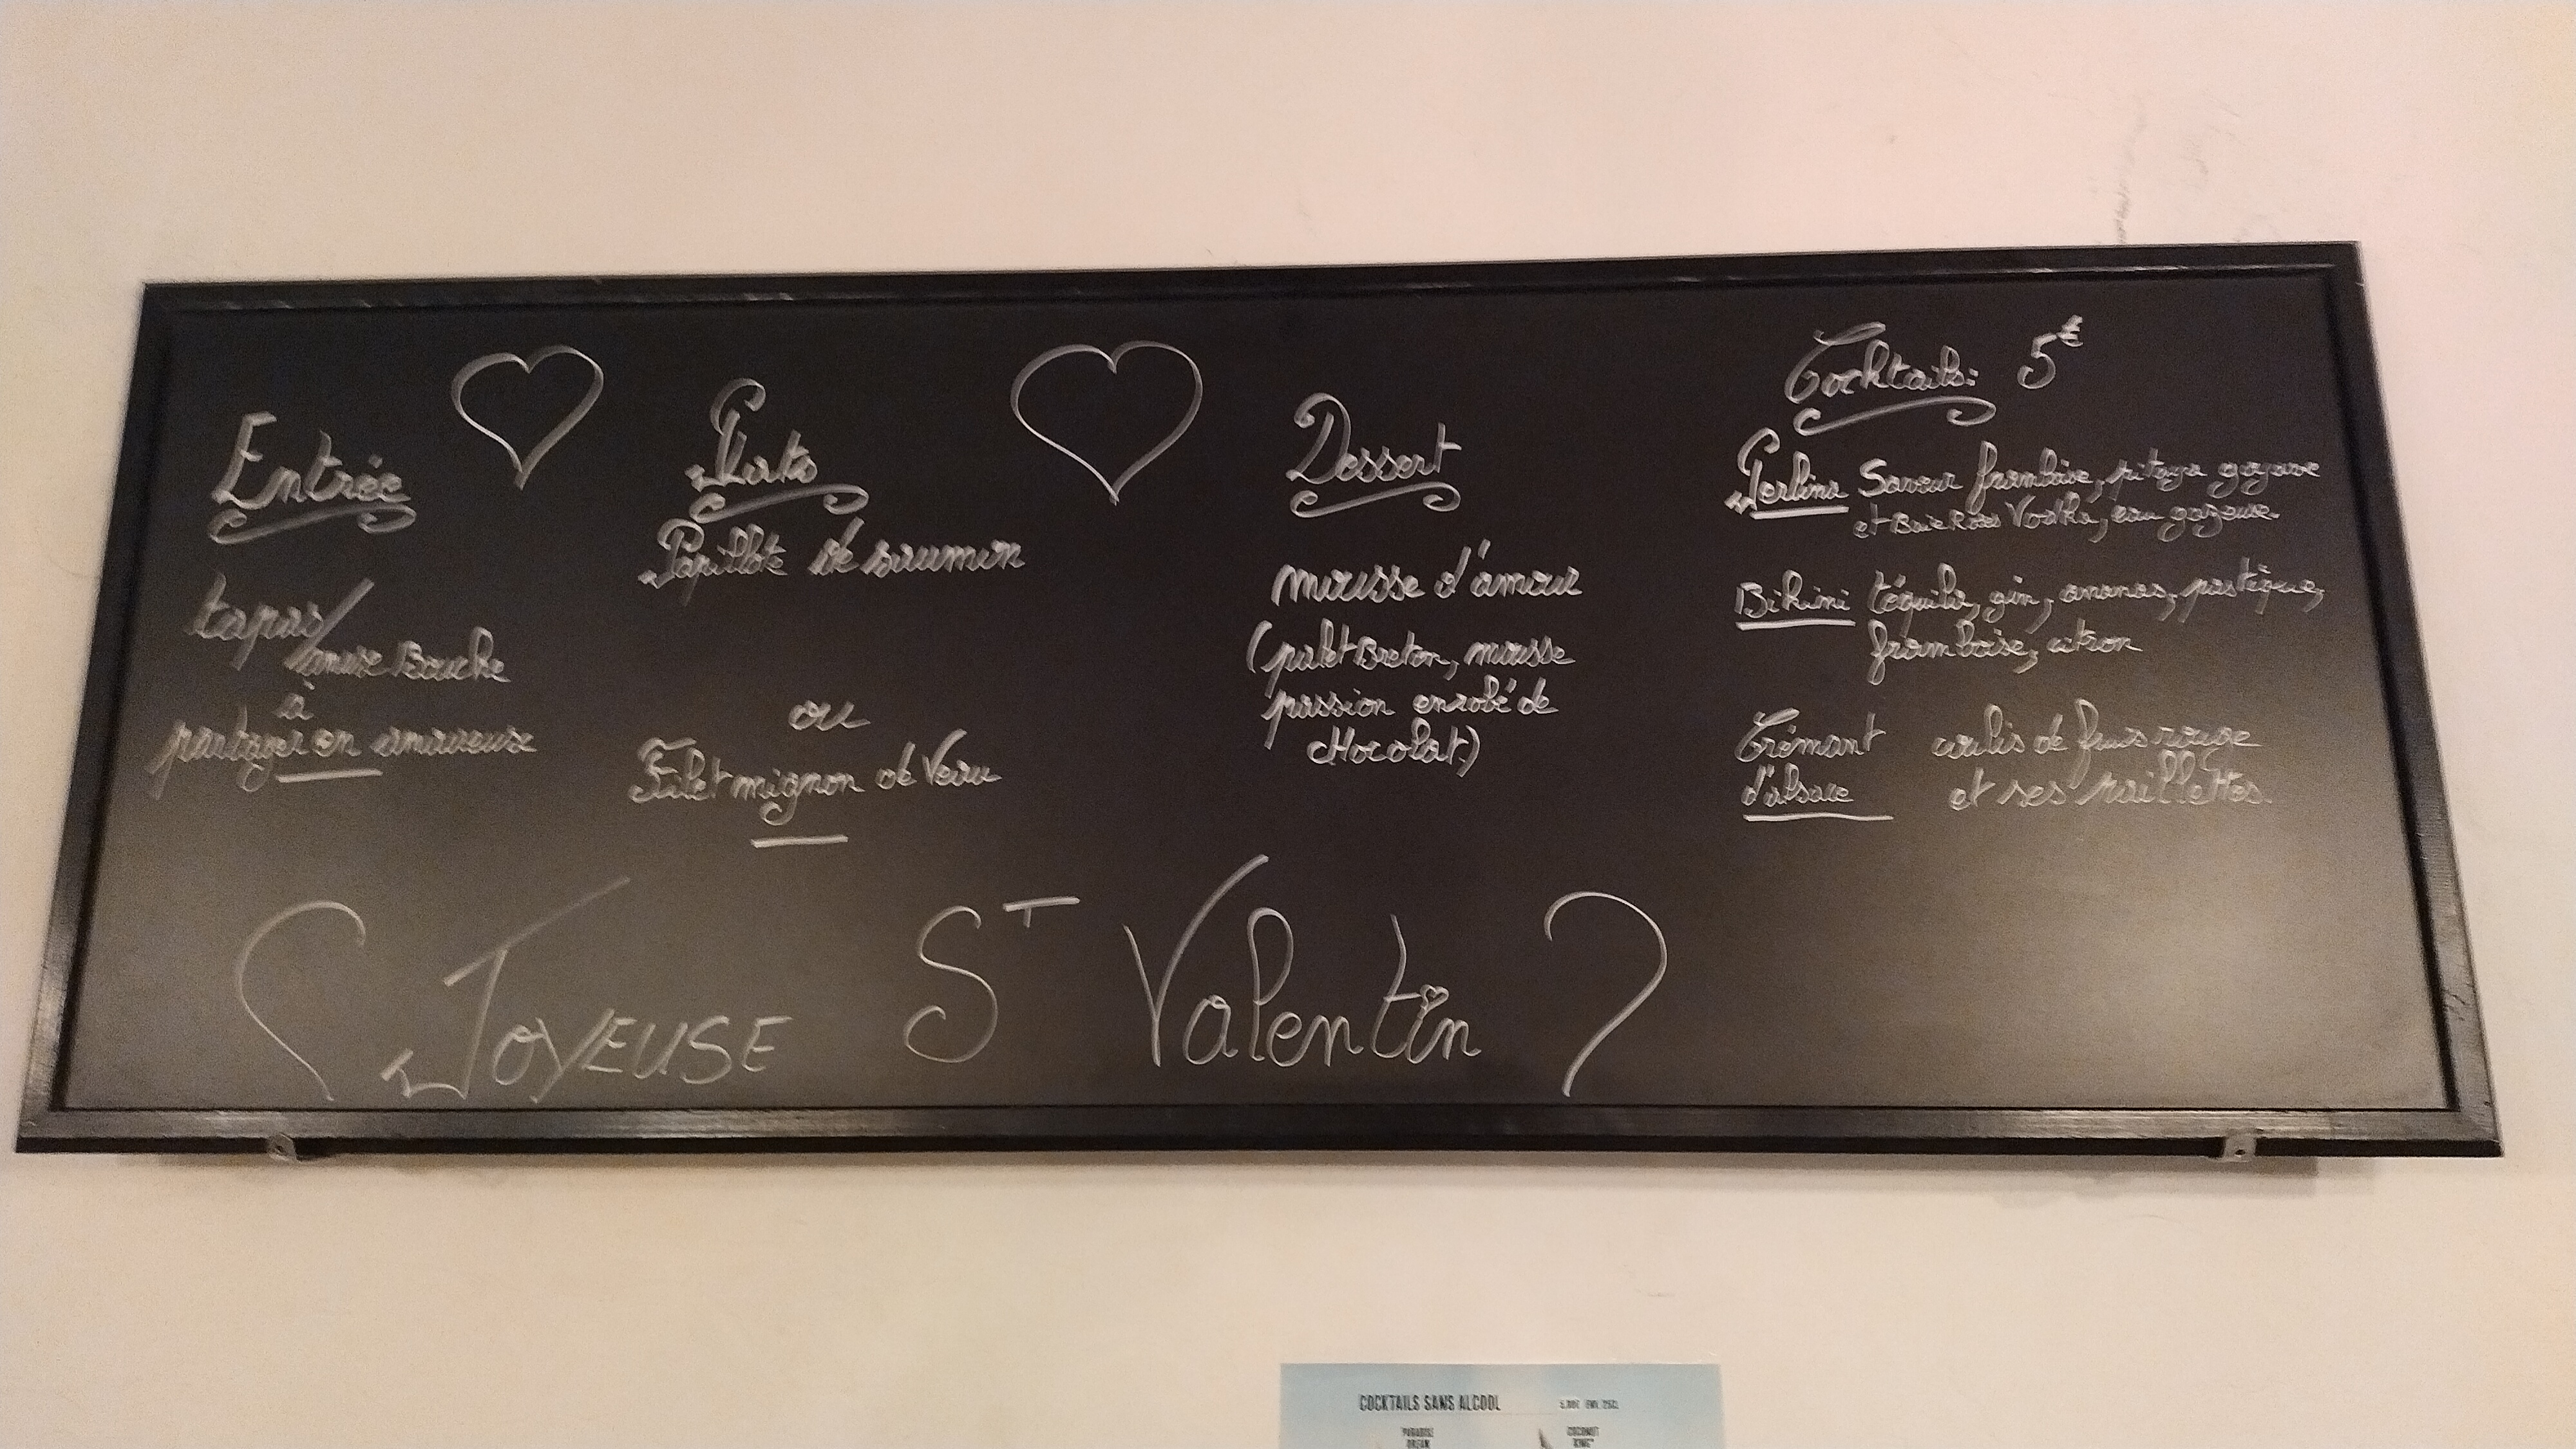 Entrée
tapas/
amuse Bouche
à
partager en amoureuse
Plats
Papillote de saumon
ou
Filet mignon de Veau
Dessert
mousse d'amour
(palet Breton, mousse
passion enrobé de
cHocolat)
Cocktails: 5€
Saveur framboise, pitaya goyave
et Baie Roses Vodka, eau gazeuse.
Bikini téquila, gin, ananas, pastèque,
framboise, citron
Crémant coulis de fruis rouge
d'alsace et ses paillettes.
JOYEUSE ST Valentin
COCKTAILS SANS ALCOOL
PARADISE
DREAM
COCONUT
KING"